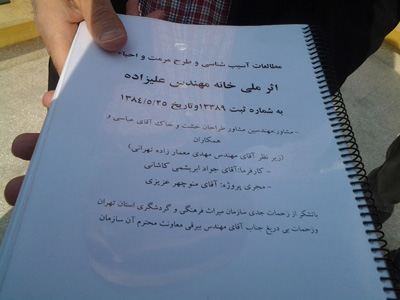 مطالعات آسیب شناسی و طرح مرمت و احیاء
اثر ملی خانه مهندس علیزاده
به شماره ثبت ۱۳۳۸۹ وتاریخ ۱۳۸۴/۵/۲۵
- مشاور:مهندسین مشاور طراحان خشت و خاک آقای عباسی و
همکاران
(زیر نظر آقای مهندس مهدی معمار زاده تهرانی)
- کارفرما: آقای جواد ابریشمی کاشانی
- مجری پروژه: آقای منوچهر عزیزی
باتشکر از زحمات جدی سازمان میراث فرهنگی و گردشگری استان تهران
وزحمات بی دریغ جناب آقای مهندس بیرقی معاونت محترم آن سازمان